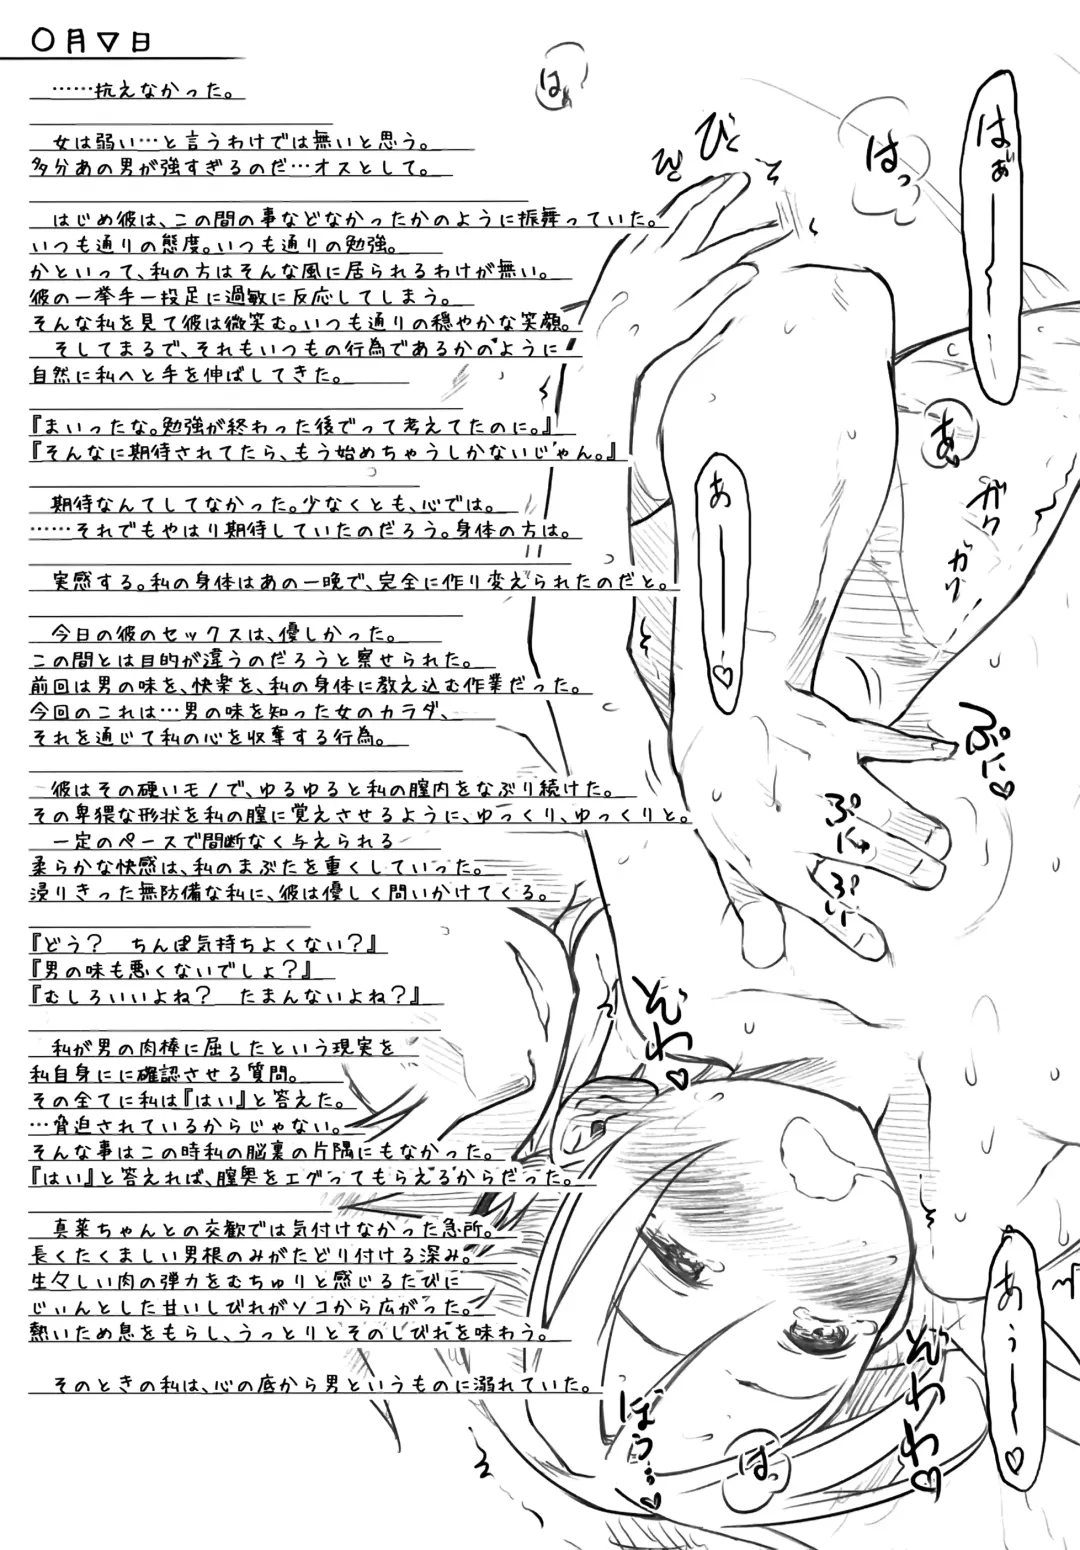 〇月▽日
……抗えなかった。
女は弱い…と言うわけでは無いと思う。
多分あの男が強すぎるのだ…オスとして。
はじめ彼は、この間の事などなかったかのように振舞っていた。
いつも通りの態度。いつも通りの勉強。
かといって、私の方はそんな風に居られるわけが無い。
彼の一挙手一投足に過敏に反応してしまう。
そんな私を見て彼は微笑む。いつも通りの穏やかな笑顔。
そしてまるで、それもいつもの行為であるかのように
自然に私へと手を伸ばしてきた。
『まいったな。勉強が終わった後でって考えてたのに。』
『そんなに期待されてたら、もう始めちゃうしかないじゃん。』
期待なんてしてなかった。少なくとも、心では。
……それでもやはり期待していたのだろう。身体の方は。
実感する。私の身体はあの一晩で、完全に作り変えられたのだと。
今日の彼のセックスは、優しかった。
この間とは目的が違うのだろうと察せられた。
前回は男の味を、快楽を、私の身体に教え込む作業だった。
今回のこれは…男の味を知った女のカラダ、
それを通じて私の心を収奪する行為。
彼はその硬いモノで、ゆるゆると私の膣内をなぶり続けた。
その卑猥な形状を私の膣に覚えさせるように、ゆっくり、ゆっくりと。
一定のペースで間断なく与えられる
柔らかな快感は、私のまぶたを重くしていった。
浸りきった無防備な私に、彼は優しく問いかけてくる。
『どう？　ちんぽ気持ちよくない？』
『男の味も悪くないでしょ？』
『むしろいいよね？　たまんないよね？』
私が男の肉棒に屈したという現実を
私自身にに確認させる質問。
その全てに私は『はい』と答えた。
…脅迫されているからじゃない。
そんな事はこの時私の脳裏の片隅にもなかった。
『はい』と答えれば、膣奥をエグってもらえるからだった。
真菜ちゃんとの交歓では気付けなかった急所。
長くたくましい男根のみがたどり付ける深み。
生々しい肉の弾力をむちゅりと感じるたびに
じぃんとした甘いしびれがソコから広がった。
熱いため息をもらし、うっとりとそのしびれを味わう。
そのときの私は、心の底から男というものに溺れていた。
は
はっ
はぁーーー
びくっ
あ
あーーーっ♡
ガク
ガク
ぷに♡
ぷに
ぞわ♡
あぅーー♡
ぞわわ♡
ほぅ…♡
はっ